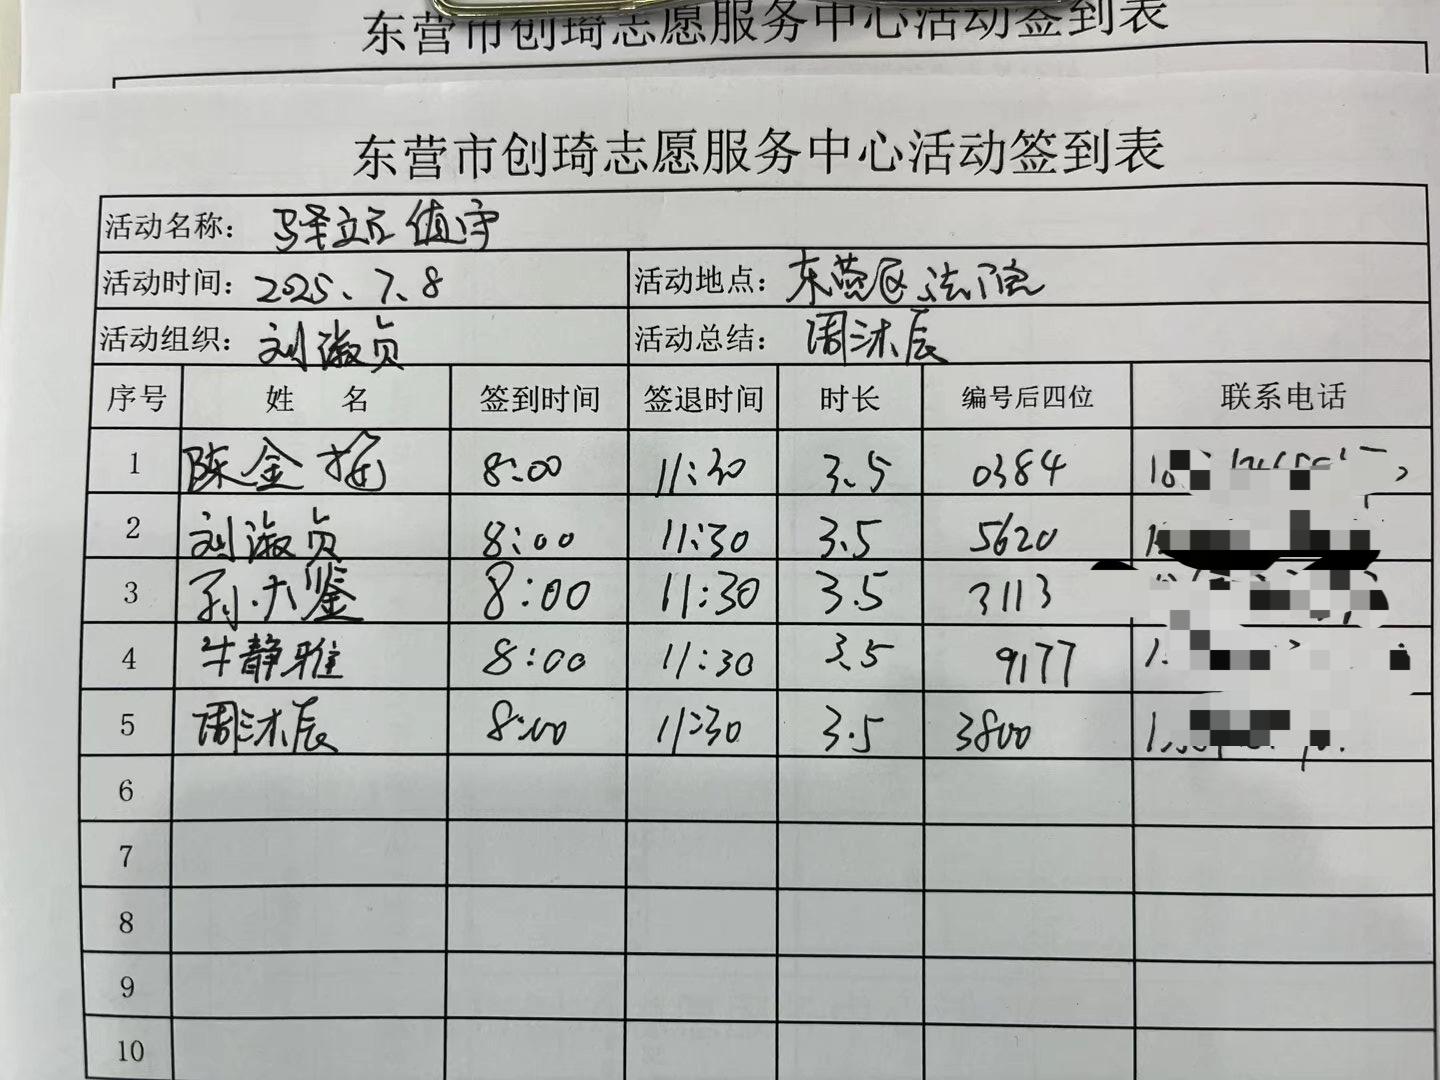 东营市创琦志愿服务中心活动签到表
东营市创琦志愿服务中心活动签到表
活动名称: 驿立元值守
活动时间: 2025.7.8 活动地点: 东营区法院
活动组织: 刘淑贞 活动总结: 周沐辰
序号 姓 名 签到时间 签退时间 时长 编号后四位 联系电话
1 陈金 8:00 11:30 3.5 0384
2 刘淑贞 8:00 11:30 3.5 5620
3 孙大鉴 8:00 11:30 3.5 3113
4 牛静雅 8:00 11:30 3.5 9177
5 周沐辰 8:00 11:30 3.5 3800
6
7
8
9
10